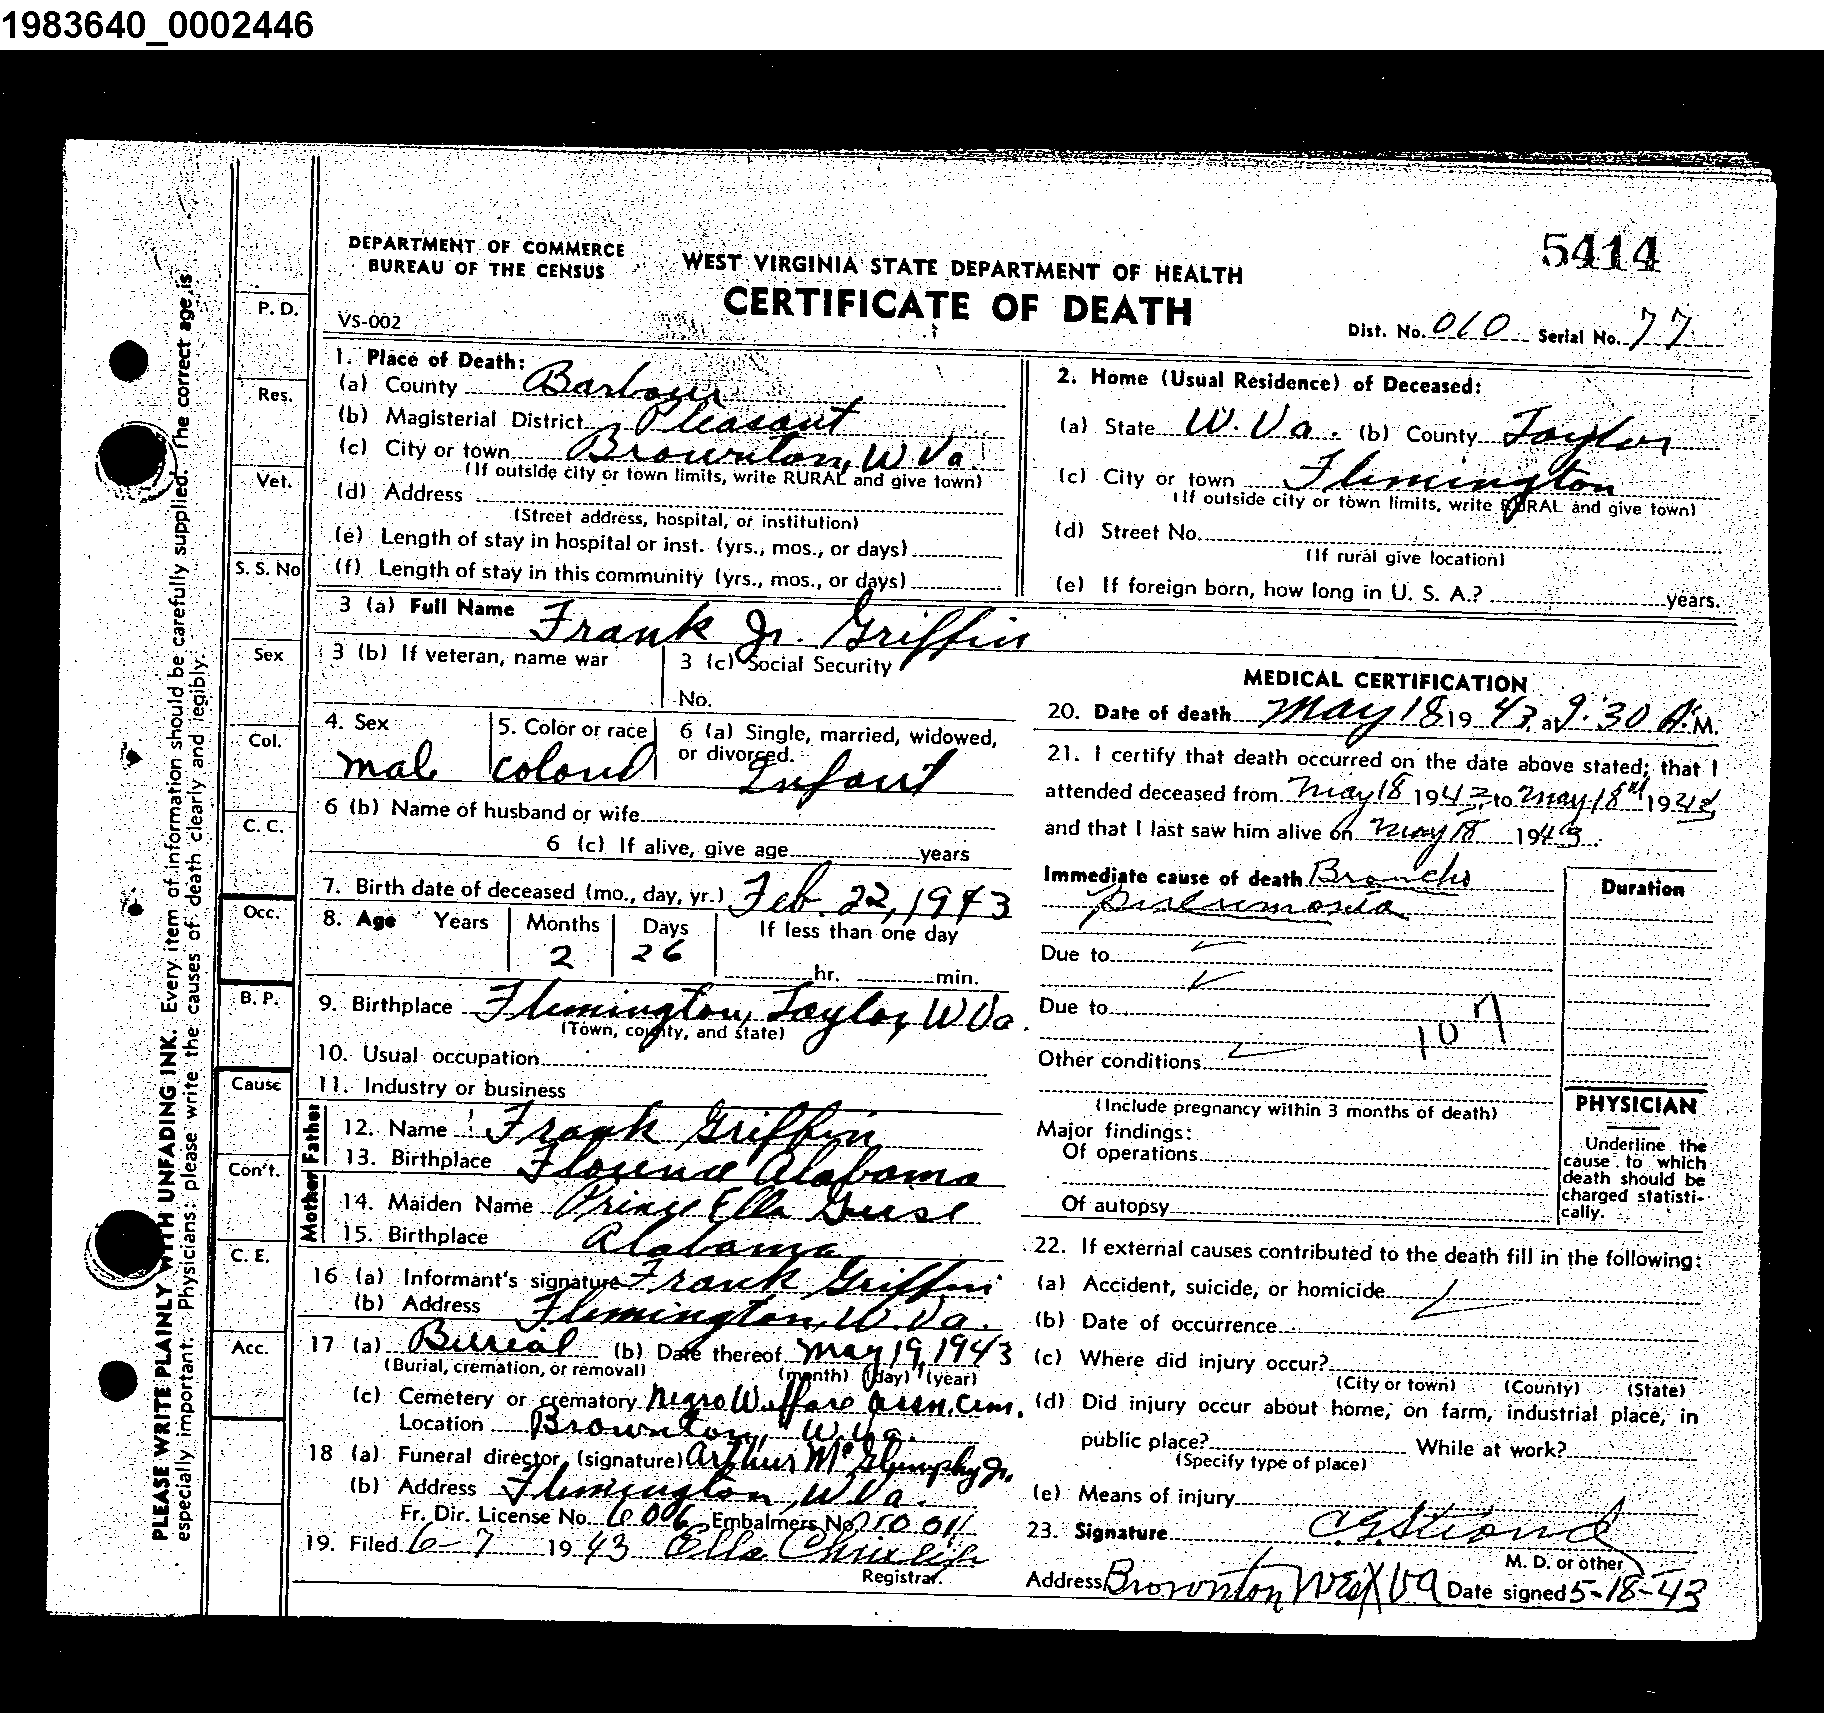 1983640_0002446
5414
DEPARTMENT OF COMMERCE
BUREAU OF THE CENSUS
WEST VIRGINIA STATE DEPARTMENT OF HEALTH
CERTIFICATE OF DEATH
VS-002
Dist. No. 010 Serial No. 77
1. Place of Death:
(a) County Barbour
(b) Magisterial District Pleasant
(c) City or town Brownton, W Va.
(If outside city or town limits, write RURAL and give town)
(d) Address
(Street address, hospital, or institution)
(e) Length of stay in hospital or inst. (yrs., mos., or days)
(f) Length of stay in this community (yrs., mos., or days)
2. Home (Usual Residence) of Deceased:
(a) State W. Va. (b) County Taylor
(c) City or town Flemington
(If outside city or town limits, write RURAL and give town)
(d) Street No.
(If rural give location)
(e) If foreign born, how long in U. S. A.? years.
3 (a) Full Name Frank Jr. Griffin
3 (b) If veteran, name war
3 (c) Social Security
No.
4. Sex
male
5. Color or race
colord
6 (a) Single, married, widowed,
or divorced.
Infant
6 (b) Name of husband or wife
6 (c) If alive, give age years
7. Birth date of deceased (mo., day, yr.) Feb. 22, 1943
8. Age Years Months Days If less than one day
2 26
hr. min.
9. Birthplace Flemington, Taylor, W Va.
(Town, county, and state)
10. Usual occupation
11. Industry or business
Father
12. Name Frank Griffin
13. Birthplace Florence Alabama
Mother
14. Maiden Name Prince Ella
15. Birthplace Alabama
16 (a) Informant's signature Frank Griffin
(b) Address Flemington, W. Va.
17 (a) Bureial (b) Date thereof May 19, 1943
(Burial, cremation, or removal) (month) (day) (year)
(c) Cemetery or crematory Negro Welfare Assn. Cem.
Location Brownton, W. Va.
18 (a) Funeral director (signature) Arthur McGlumphy Jr.
(b) Address Flemington, W Va.
Fr. Dir. License No. 6006 Embalmers No.
19. Filed 6-7 1943 Ella
Registrar.
MEDICAL CERTIFICATION
20. Date of death May 18 1943, at 9:30 A. M.
21. I certify that death occurred on the date above stated; that I
attended deceased from May 18 1943, to May 18th 1943
and that I last saw him alive on May 18 1943.
Immediate cause of death Broncho
pneumonia
Duration
Due to
Due to
107
Other conditions
(Include pregnancy within 3 months of death)
Major findings:
Of operations
Of autopsy
PHYSICIAN
Underline the
cause to which
death should be
charged statisti-
cally.
22. If external causes contributed to the death fill in the following:
(a) Accident, suicide, or homicide
(b) Date of occurrence
(c) Where did injury occur?
(City or town) (County) (State)
(d) Did injury occur about home, on farm, industrial place, in
public place? While at work?
(Specify type of place)
(e) Means of injury
23. Signature
M. D. or other
Address Brownton West Va Date signed 5-18-43
P. D.
Res.
Vet.
S. S. No
Sex
Col.
C. C.
Occ.
B. P.
Cause
Con't.
C. E.
Acc.
PLEASE WRITE PLAINLY WITH UNFADING INK. Every item of information should be carefully supplied. The correct age is
especially important. Physicians: please write the causes of death clearly and legibly.